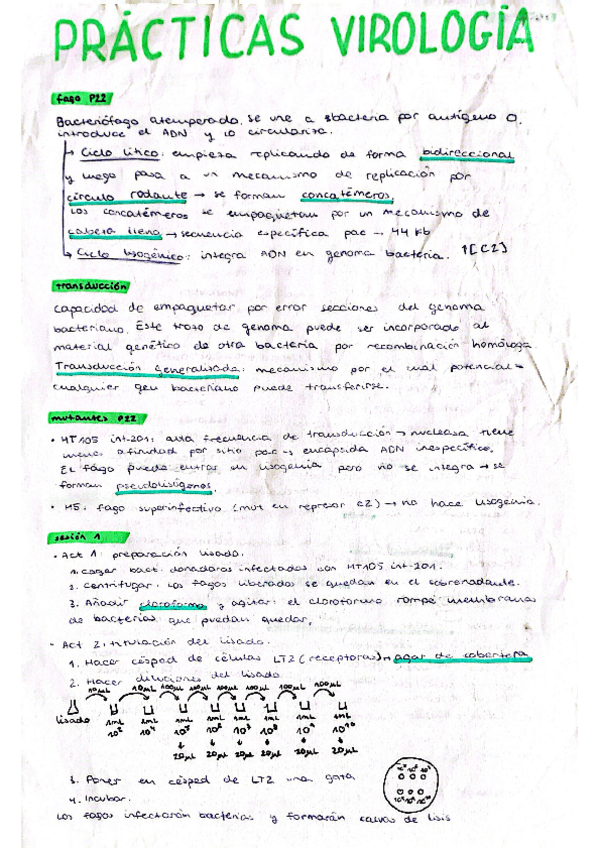 PRÁCTICAS VIROLOGÍA
fago P22
Bacteriófago atemperado. Se une a sbacteria por antígeno O,
introduce el ADN y lo circulariza.
→ Ciclo lítico: empieza replicando de forma bidireccional
y luego pasa a un mecanismo de replicación por
círculo rodante → se forman concatémeros.
Los concatémeros se empaquetan por un mecanismo de
cabeza llena → secuencia específica pac → 44 kb
→ Ciclo lisogénico: integra ADN en genoma bacteria. ↑[C2]
transducción
Capacidad de empaquetar por error secciones del genoma
bacteriano. Este trozo de genoma puede ser incorporado al
material genético de otra bacteria por recombinación homóloga
Transducción generalizada: mecanismo por el cual potencial=
cualquier gen bacteriano puede transferirse.
mutantes P22
• HT105 int-201: alta frecuencia de transducción → nucleasa tiene
menos afinidad por sitio pac → encapsida ADN inespecífico.
El fago puede entrar en lisogenia pero no se integra → se
forman pseudolisógenos.
• H5: fago superinfectivo (mut en represor c2) → no hace lisogenia.
sesión 1
• Act 1: preparación lisado.
1. Coger bact. donadoras infectadas con HT105 int-201.
2. Centrifugar. Los fagos liberados se quedan en el sobrenadante.
3. Añadir cloroformo y agitar: el cloroformo rompe membranas
de bacterias que puedan quedar.
• Act 2: titulación del lisado.
1. Hacer césped de células LT2 (receptoras) → agar de cobertera
2. Hacer diluciones del lisado
10µL 10µL 100µL 100µL 100µL 100µL 100µL 100µL
lisado 1mL 1mL 1mL 1mL 1mL 1mL 1mL 1mL
10² 10⁴ 10⁵ 10⁶ 10⁷ 10⁸ 10⁹ 10¹⁰
20µL 20µL 20µL 20µL 20µL 20µL
3. Poner en césped de LT2 una gota
4. Incubar.
Los fagos infectarán bacterias y formarán calvas de lisis